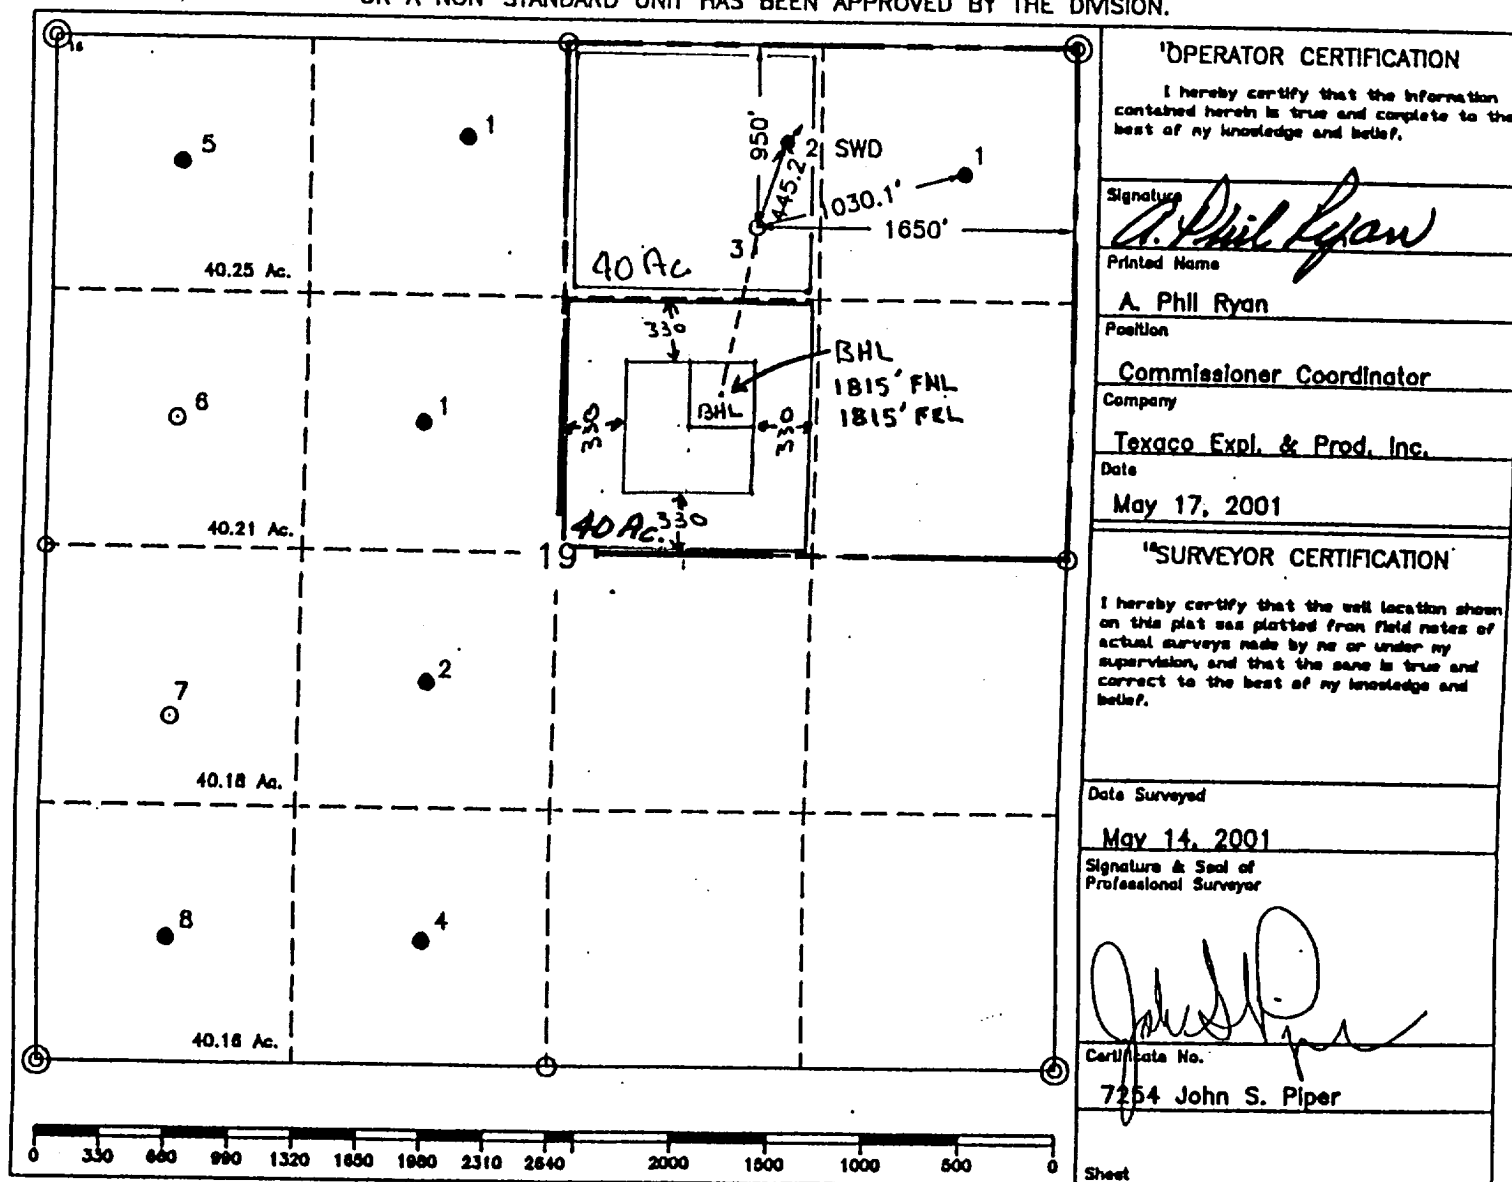 OR A NON-STANDARD UNIT HAS BEEN APPROVED BY THE DIVISION.
5
1
950'
445.2'
2 SWD
1
1030.1'
1650'
3
40.25 Ac.
40 Ac
330
BHL
1815' FNL
1815' FEL
6
1
BHL
330
330
40.21 Ac.
40 Ac.
330
19
7
2
40.18 Ac.
8
4
40.16 Ac.
0 330 660 990 1320 1650 1980 2310 2640 2000 1500 1000 500 0
OPERATOR CERTIFICATION
I hereby certify that the information
contained herein is true and complete to the
best of my knowledge and belief.
Signature
A. Phil Ryan
Printed Name
A. Phil Ryan
Position
Commissioner Coordinator
Company
Texaco Expl. & Prod. Inc.
Date
May 17, 2001
SURVEYOR CERTIFICATION
I hereby certify that the well location shown
on this plat was plotted from field notes of
actual surveys made by me or under my
supervision, and that the same is true and
correct to the best of my knowledge and
belief.
Date Surveyed
May 14, 2001
Signature & Seal of
Professional Surveyor
John S. Piper
Certificate No.
7254 John S. Piper
Sheet